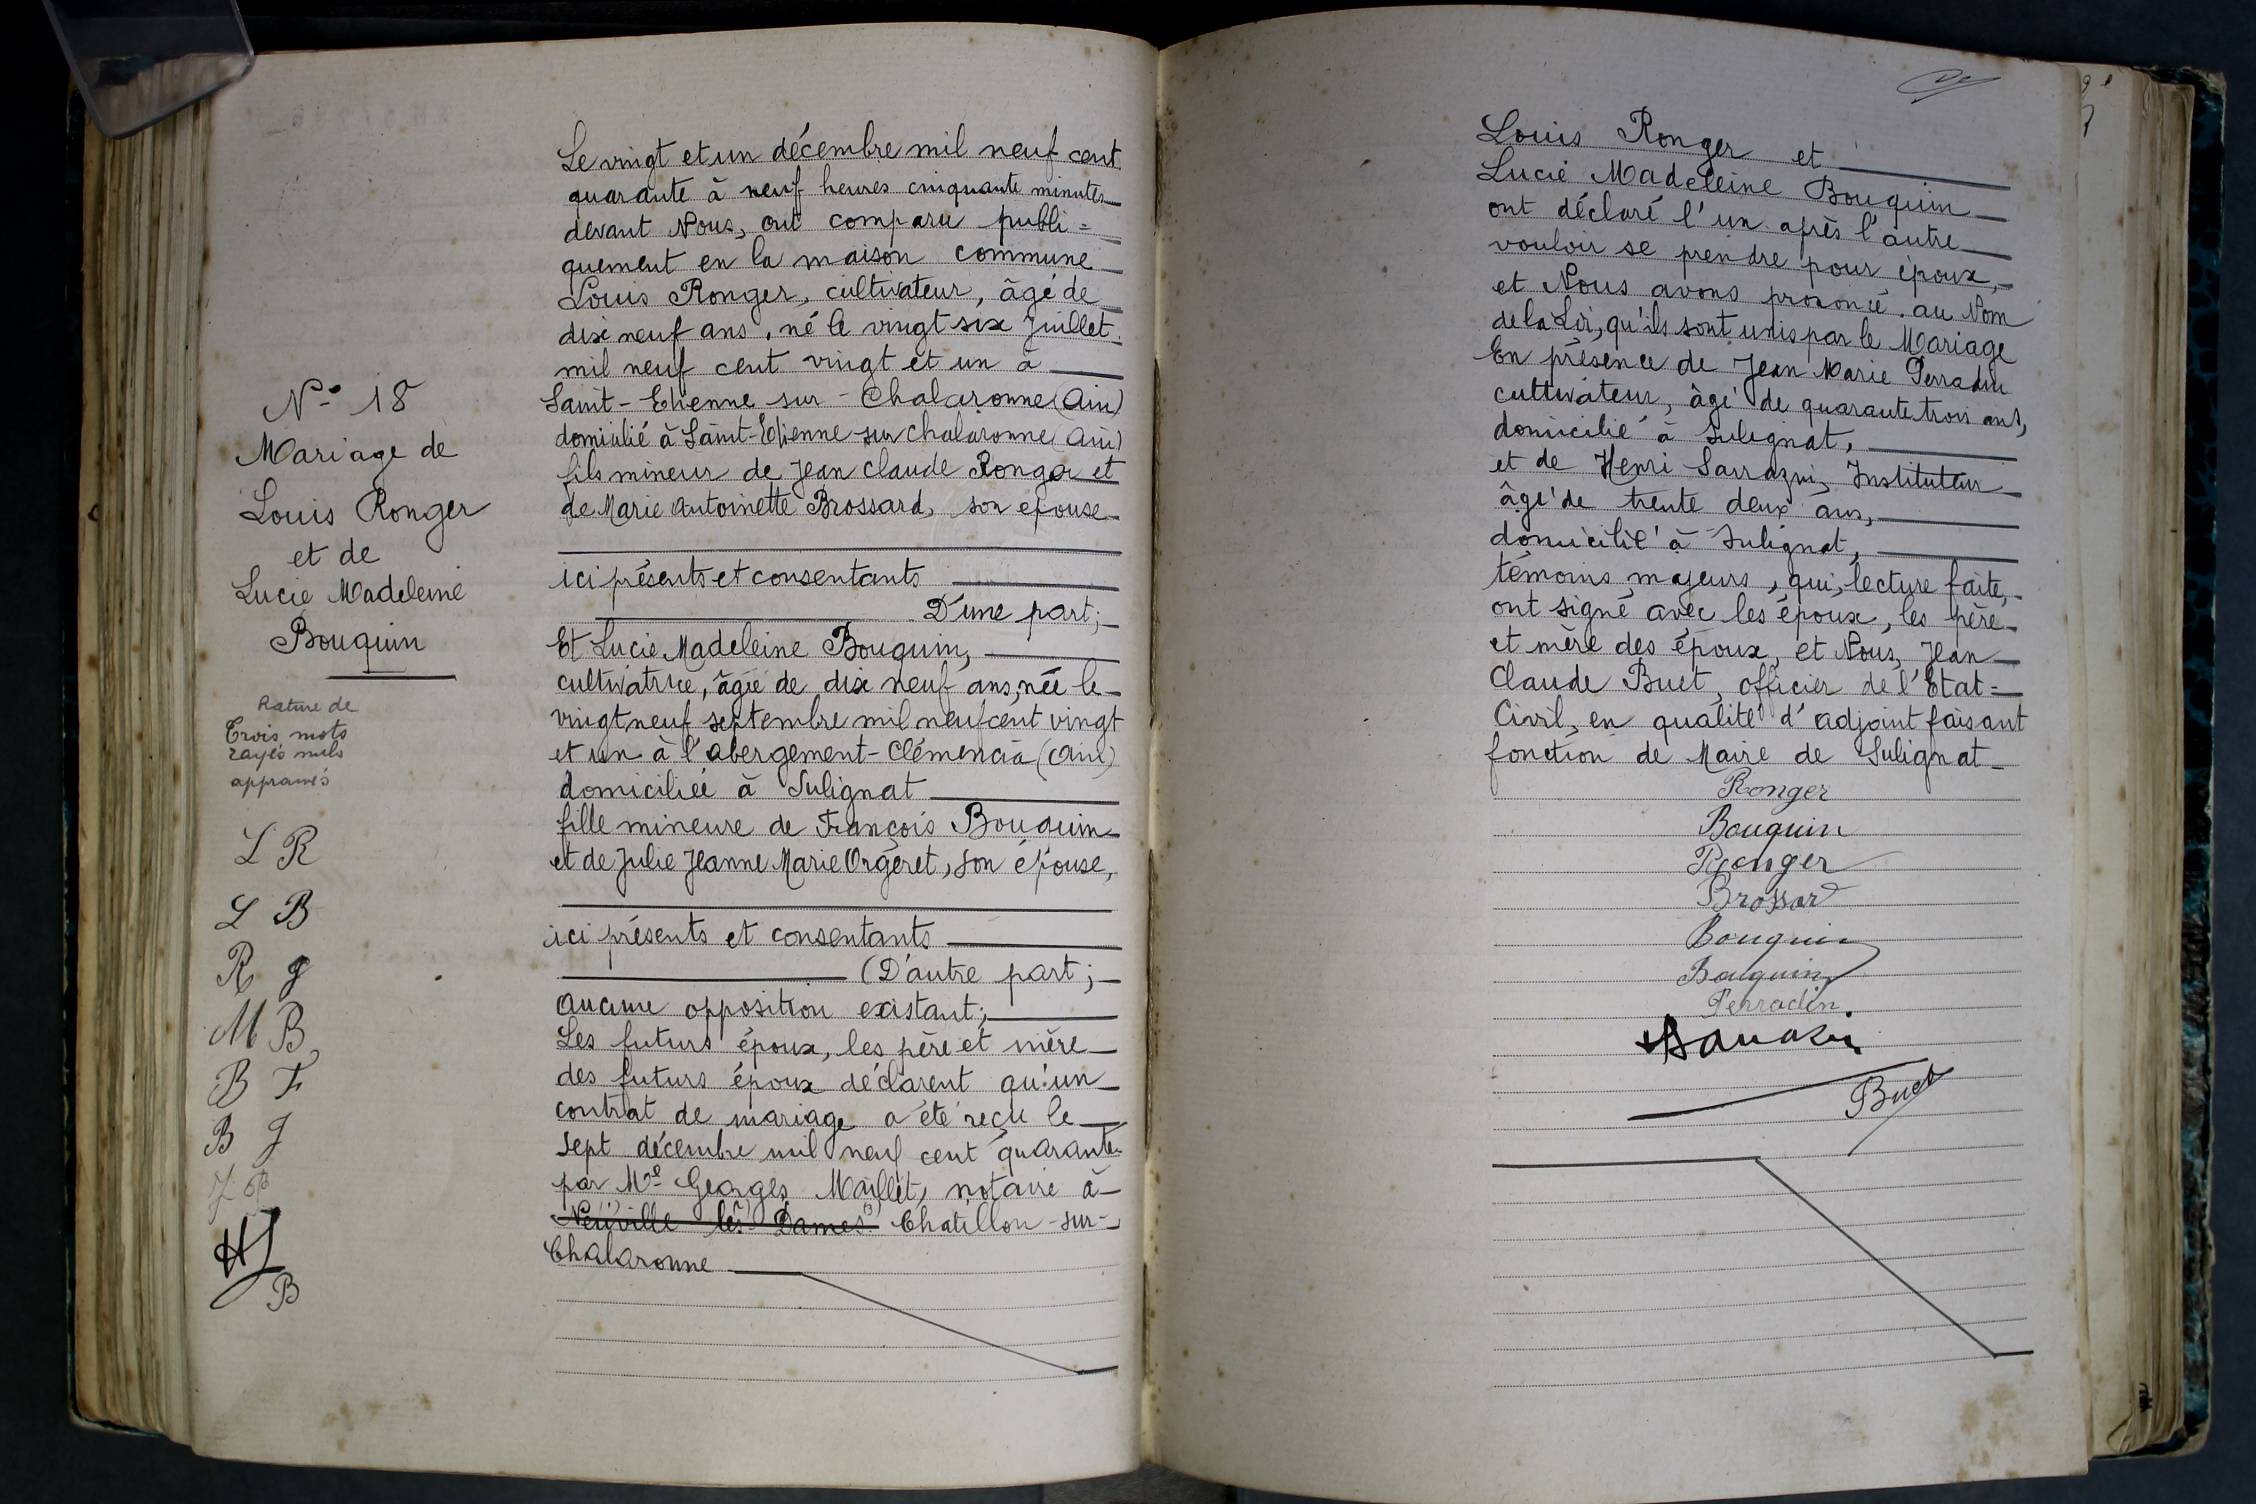 N° 18
Mariage de
Louis Ronger
et de
Lucie Madeleine
Bouquin
Rature de
Trois mots
rayés nuls
approuvés
L R
L B
R J
M B
B F
B J
H S
B
Le vingt et un décembre mil neuf cent
quarante à neuf heures cinquante minutes
devant Nous, ont comparu publi=
quement en la maison commune
Louis Ronger, cultivateur, âgé de
dix neuf ans, né le vingt six Juillet
mil neuf cent vingt et un à
Saint-Etienne sur-Chalaronne (Ain)
domicilié à Saint-Etienne-sur Chalaronne (Ain)
fils mineur de Jean Claude Ronger et
de Marie Antoinette Brossard, son épouse
ici présents et consentants
D'une part;
Et Lucie Madeleine Bouquin,
cultivatrice, âgée de dix neuf ans, née le
vingt neuf septembre mil neuf cent vingt
et un à l'abergement-Clémencia (Ain)
domiciliée à Sulignat
fille mineure de François Bouquin
et de Julie Jeanne Marie Orgeret, son épouse,
ici présents et consentants
(D'autre part;
aucune opposition existant;
Les futurs époux, les père et mère
des futurs époux déclarent qu'un
contrat de mariage a été reçu le
sept décembre mil neuf cent quarante
par Me Georges Maillet, notaire à
Neuville les Dames Chatillon-sur-
Chalaronne
Louis Ronger et
Lucie Madeleine Bouquin
ont déclaré l'un après l'autre
vouloir se prendre pour époux,
et Nous avons prononcé au Nom
de la Loi, qu'ils sont unis par le Mariage
En présence de Jean Marie Perradin
cultivateur, âgé de quarante trois ans,
domicilié à Sulignat,
et de Henri Sarrazin, Instituteur
âgé de trente deux ans,
domicilié à Sulignat,
témoins majeurs, qui, lecture faite,
ont signé avec les époux, les père
et mère des époux, et Nous, Jean
Claude Buet, officier de l'Etat=
Civil, en qualité d'adjoint faisant
fonction de Maire de Sulignat
Ronger
Bouquin
Ronger
Brossard
Bouquin
Bouquin
Perradin
Buet